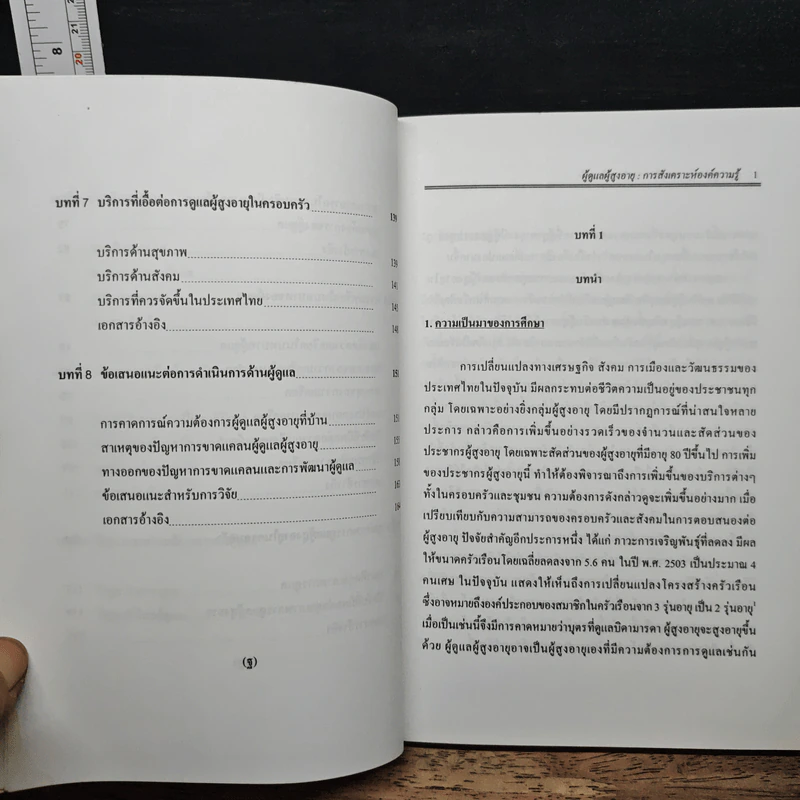 8
20
21
บทที่ 7 บริการที่เอื้อต่อการดูแลผู้สูงอายุในครอบครัว 139
บริการด้านสุขภาพ 139
บริการด้านสังคม 141
บริการที่ควรจัดขึ้นในประเทศไทย
เอกสารอ้างอิง
บทที่ 8 ข้อเสนอแนะต่อการดำเนินการด้านผู้ดูแล
การคาดการณ์ความต้องการผู้ดูแลผู้สูงอายุที่บ้าน
สาเหตุของปัญหาการขาดแคลนผู้ดูแลผู้สูงอายุ
ทางออกของปัญหาการขาดแคลนและการพัฒนาผู้ดูแล
ข้อเสนอแนะสำหรับการวิจัย
เอกสารอ้างอิง
(ฐ)
ผู้ดูแลผู้สูงอายุ : การสังเคราะห์องค์ความรู้ 1
บทที่ 1
บทนำ
1. ความเป็นมาของการศึกษา
การเปลี่ยนแปลงทางเศรษฐกิจ สังคม การเมืองและวัฒนธรรมของ
ประเทศไทยในปัจจุบัน มีผลกระทบต่อชีวิตความเป็นอยู่ของประชาชนทุก
กลุ่ม โดยเฉพาะอย่างยิ่งกลุ่มผู้สูงอายุ โดยมีปรากฏการณ์ที่น่าสนใจหลาย
ประการ กล่าวคือการเพิ่มขึ้นอย่างรวดเร็วของจำนวนและสัดส่วนของ
ประชากรผู้สูงอายุ โดยเฉพาะสัดส่วนของผู้สูงอายุที่มีอายุ 80 ปีขึ้นไป การเพิ่ม
ของประชากรผู้สูงอายุนี้ ทำให้ต้องพิจารณาถึงการเพิ่มขึ้นของบริการต่างๆ
ทั้งในครอบครัวและชุมชน ความต้องการดังกล่าวดูจะเพิ่มขึ้นอย่างมาก เมื่อ
เปรียบเทียบกับความสามารถของครอบครัวและสังคมในการตอบสนองต่อ
ผู้สูงอายุ ปัจจัยสำคัญอีกประการหนึ่ง ได้แก่ ภาวะการเจริญพันธุ์ที่ลดลง มีผล
ให้ขนาดครัวเรือนโดยเฉลี่ยลดลงจาก 5.6 คน ในปี พ.ศ. 2503 เป็นประมาณ 4
คนเศษ ในปัจจุบัน แสดงให้เห็นถึงการเปลี่ยนแปลงโครงสร้างครัวเรือน
ซึ่งอาจหมายถึงองค์ประกอบของสมาชิกในครัวเรือนจาก 3 รุ่นอายุ เป็น 2 รุ่นอายุ¹
เมื่อเป็นเช่นนี้จึงมีการคาดหมายว่าบุตรที่ดูแลบิดามารดา ผู้สูงอายุจะสูงอายุขึ้น
ด้วย ผู้ดูแลผู้สูงอายุอาจเป็นผู้สูงอายุเองที่มีความต้องการการดูแลเช่นกัน